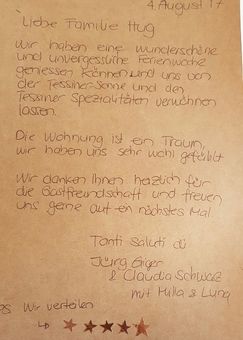 4. August 17
Liebe Familie Hug
wir haben eine wunderschöne
und unvergessliche Ferienwoche
geniessen können und uns von
der Tessiner-Sonne und den
Tessiner Spezialitäten verwöhnen
lassen.
Die Wohnung ist ein Traum,
wir haben uns sehr wohl gefühlt
Wir danken Ihnen herzlich für
die Gastfreundschaft und freuen
uns gerne auf ein nächstes Mal
Tanti saluti di
Jürg Giger
& Claudia Schwarz
mit Milla & Luna
PS Wir verteilen